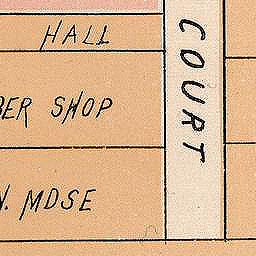 HALL
BER SHOP
N. MDSE
COURT